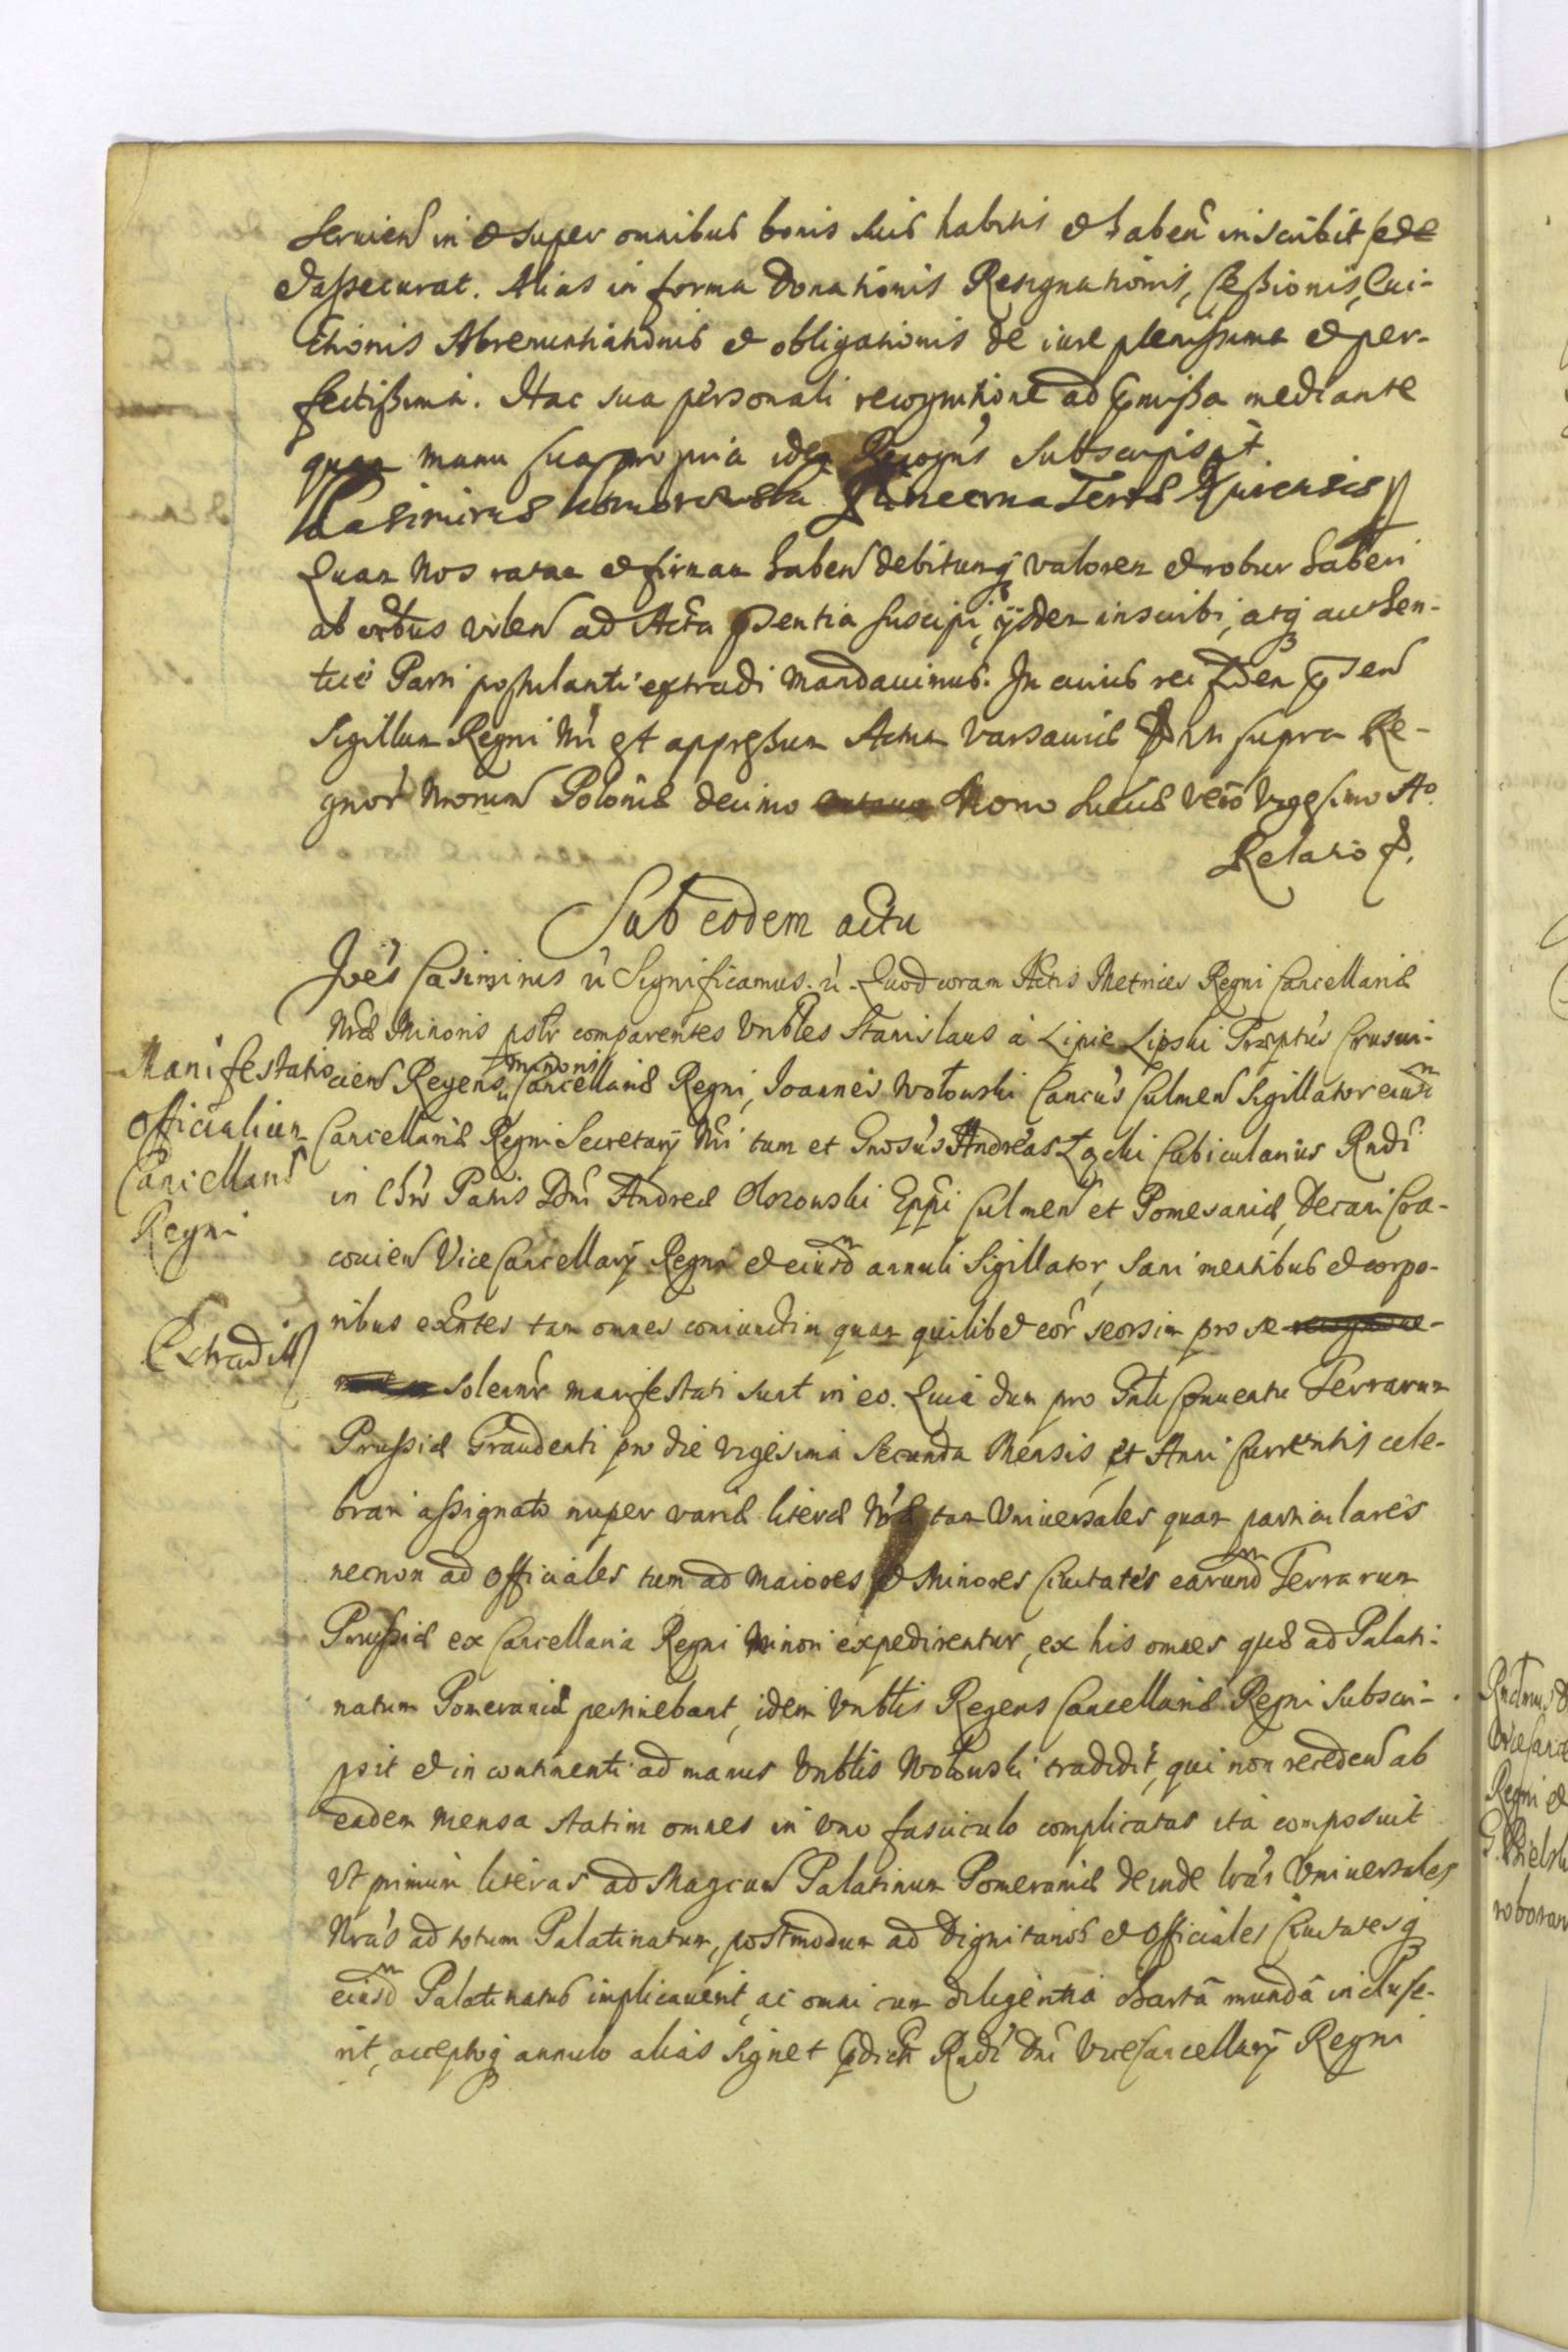 Seruien in et super omnibus bonis suis habitis et haben inscribit
et assecurat. Alias in forma Donationis Resignationis, Cessionis, Eui-
ctionis Abrenuntiationis et obligationis de iure plenissima et per-
fectissima. Hac sua personali recognitione ad pmissa mediante
quam manu sua propria idem Recogns subscripsit
Casimirus Terrae
Quam Nos ratam et firmam haben debitumq valorem et robur haberi
ab oibus volen ad Acta psentia suscipi, ijsdem inscribi, atq authen-
tice Parti postulanti extradi mandauimus. In cuius rei fidem psen
Sigillum Regni Nri est appressum Actum Varsauiae ut supra Re-
gnor Nrorum Poloniae decimo Nono Sueciae vero Vigesimo Ao.
Relatio
Sub eodem actu
Joes Casimirus Significamus. Quod coram Actis Metrices Regni Cancellariae
Nrae Minoris pslr comparentes Vnbles Stanislaus à Lipie Lipski Praeptus Crusui-
cien Regens minoris Cancellariae Regni, Joannes Wołowski Cancus Culmen Sigillator eiusdm
Cancellariae Regni Secretarij Nri tum et Gnosus Andreas Łącki Cubicularius Rndi
in Chro Patris Dni Andreae Olszowski Eppi Culmen et Pomesaniae, Decani Cra-
couien Vice Cancellarij Regni et eiusdm annuli Sigillator, sani mentibus et corpo-
ribus exntes tam omnes coniunctim quam quilibet eor seorsim pro se
solennr manifestati sunt in eo. Quia dum pro Gnli Conuentu Terrarum
Prussiae Graudenti pro die vigesima secunda Mensis et Anni Currentis cele-
brari assignato nuper variae literae Nrae tam Vniuersales quam particulares
necnon ad officiales tum ad Maiores et Minores Ciuitates earundm Terrarum
Prussiae ex Cancellaria Regni Minori expedirentur, ex his omnes quae ad Palati-
natum Pomeraniae pertinebant, idem Vnblis Regens Cancellariae Regni subscri-
psit et in continenti ad manus Vnblis Wołowski tradidit, qui non receden ab
eadem mensa statim omnes in vno fasciculo complicatas ita composuit
Vt primum literas ad Magcum Palatinum Pomeraniae deinde lras Vniuersales
Nras ad totum Palatinatum, postmodum ad Dignitarios et Officiales Ciuitatesq
eiusdm Palatinatus implicauerit, ac omni cum diligentia charta munda incluse-
rit, acceptoq annulo alias signet pdicti Rndi Dni ViceCancellarij Regni
Manifestatio
Officialium
Cancellariae
Regni
Extradit
Regni et